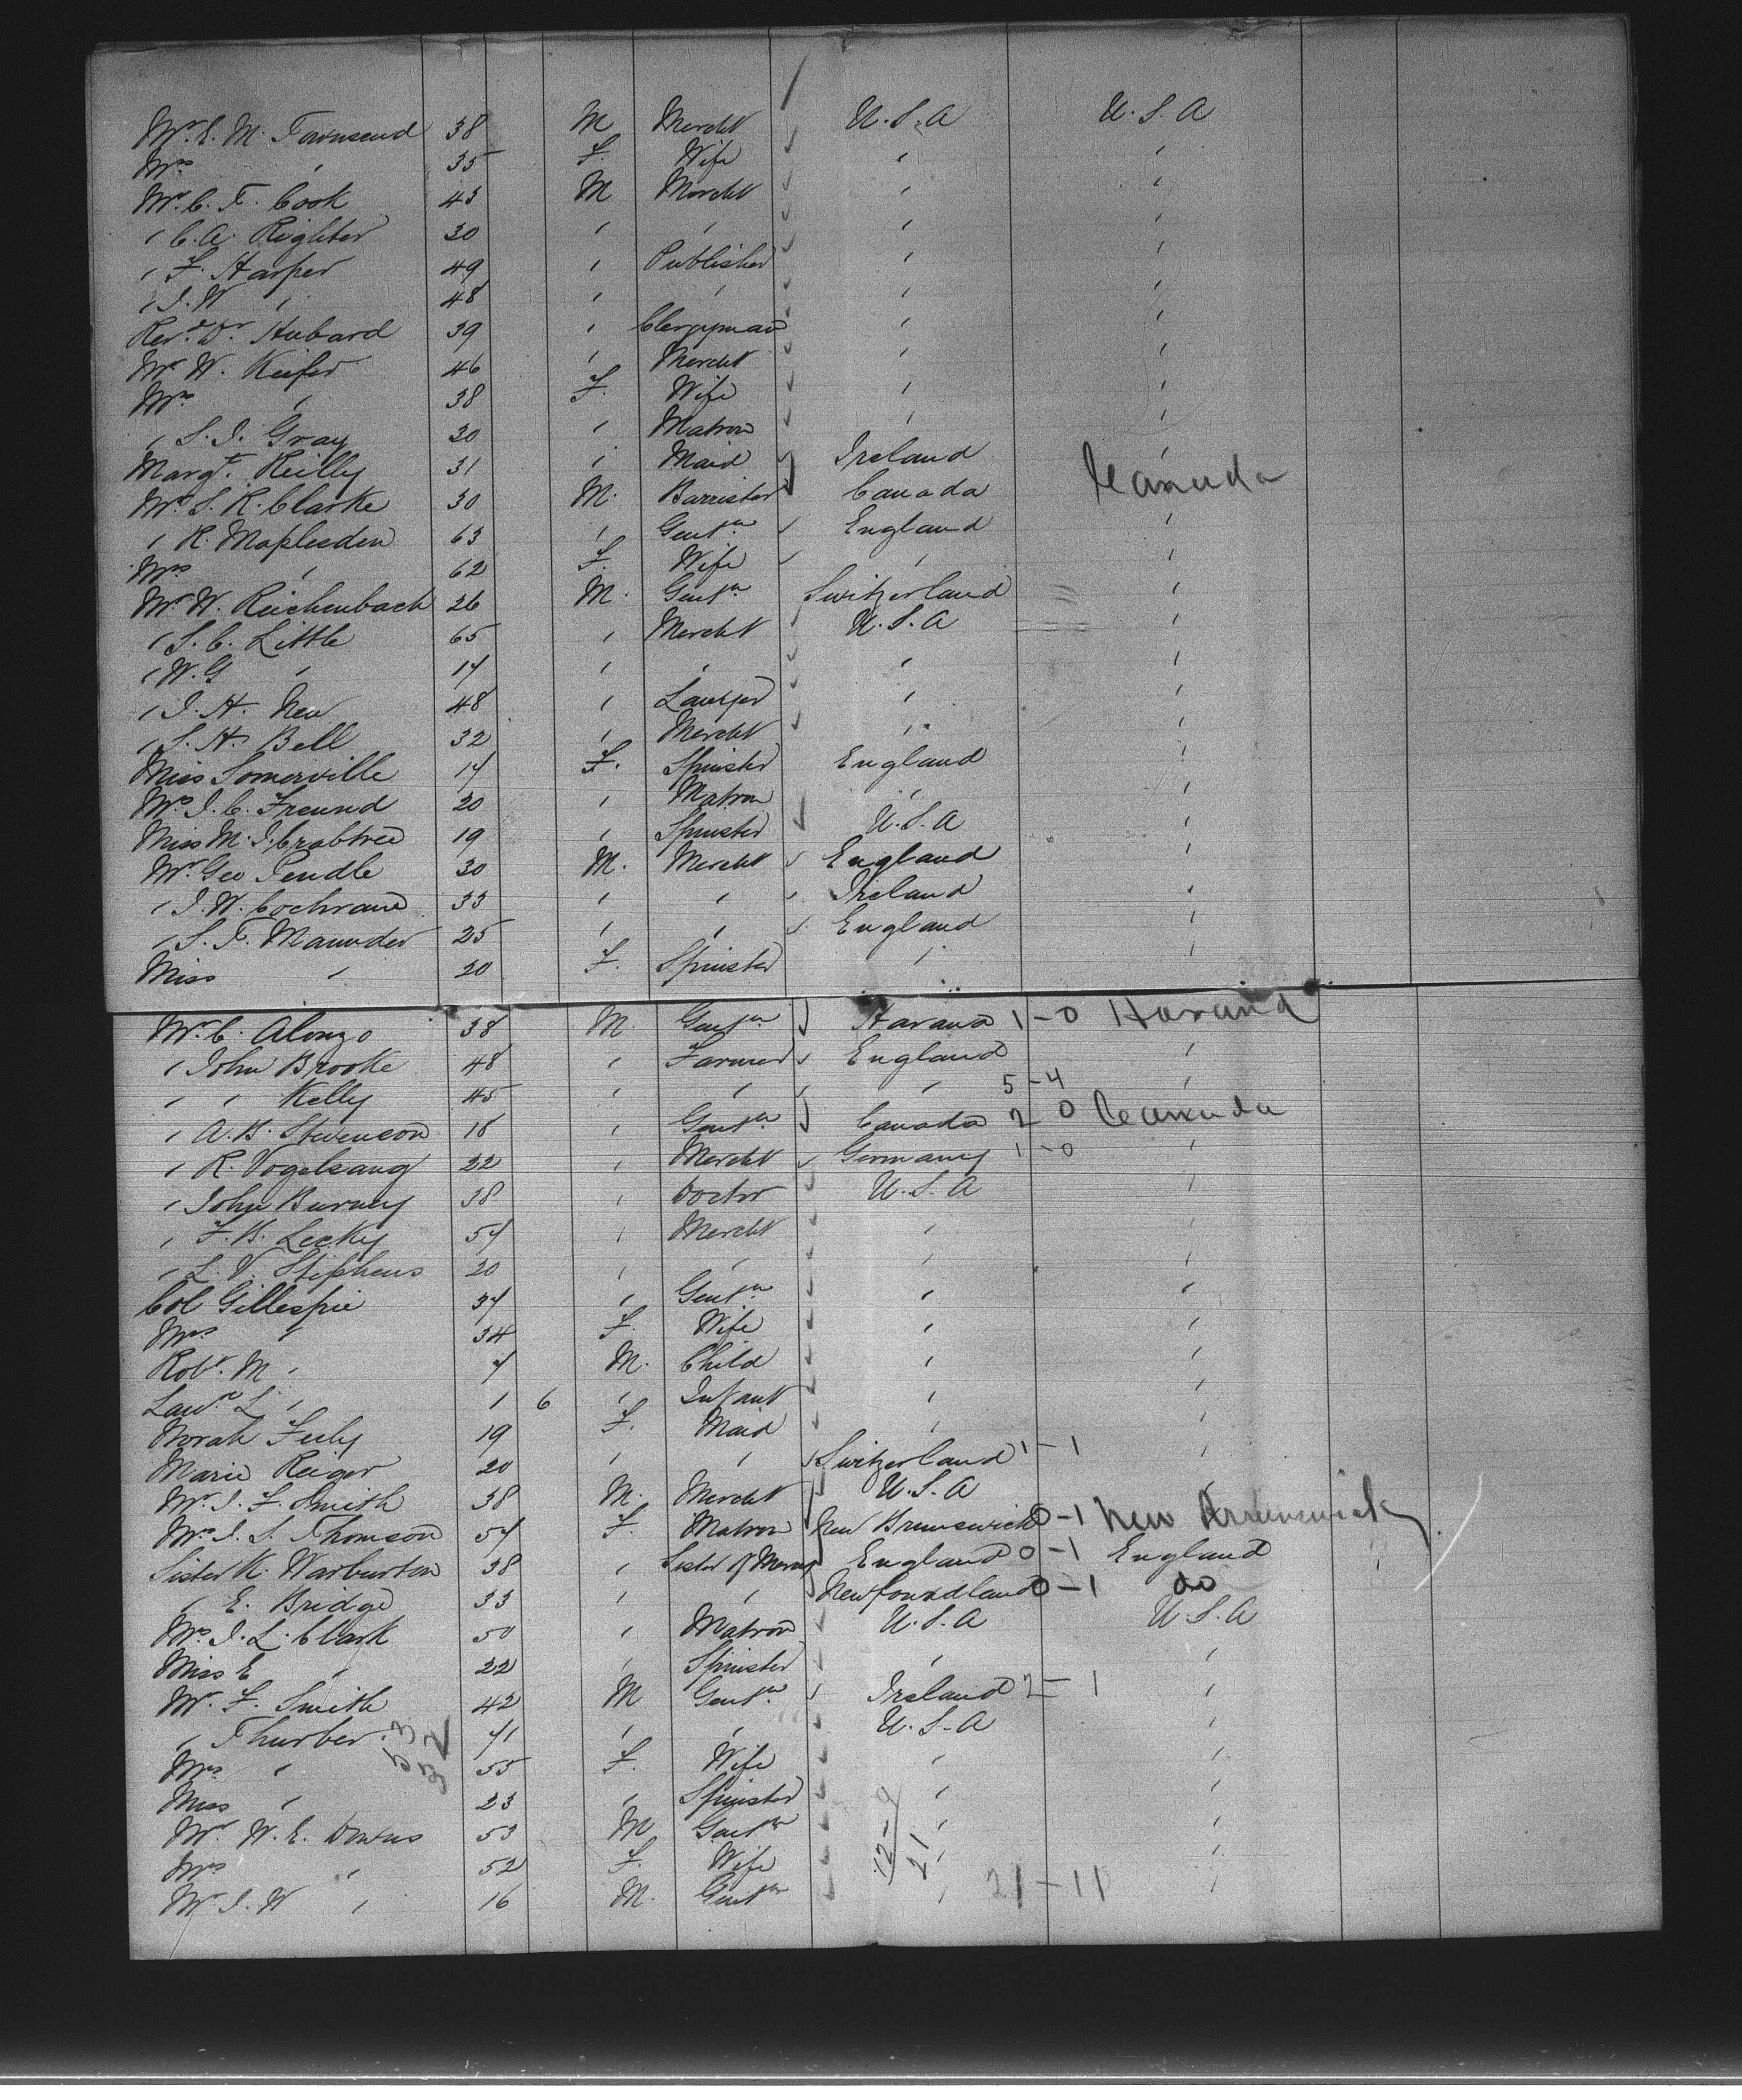 Mr. E. M. Townsend 38 M Mercht U.S.A U.S.A
Mrs " 35 F. Wife " "
Mr. C. F. Cook 43 M Mercht " "
" C. A. Righter 30 " " " "
" F. Harper 49 " Publisher " "
" J. W " 48 " " " "
Revd. Dr. Hubard 39 " Clergyman " "
Mr W. Keifer 46 " Mercht " "
Mrs " 38 F. Wife " "
" S. J. Gray 30 " Matron " "
Margt. Reilly 31 " Maid Ireland "
Mr. S. R. Clarke 30 M. Barrister Canada Canada
" R. Maplesden 63 " Gentn England "
Mrs " 62 F. Wife " "
Mr W. Reichenbach 26 M. Gentn Switzerland "
" S. C. Little 65 " Mercht U.S.A "
" W. G " 17 " " " "
" J. H. New 48 " Lawyer " "
" S. H. Bell 32 " Mercht " "
Miss Somerville 17 F. Spinster England "
Mrs J. C. Freund 20 " Matron " "
Miss M. J. Crabtree 19 " Spinster U.S.A "
Mr. Geo Pendle 30 M. Mercht England "
" J. W. Cochrane 33 " " Ireland "
" S. F. Maunder 25 " " England "
Miss " 20 F. Spinster " "
Mr. C. Alonzo 38 M Gentn Havana 1-0 Havana
" John Brooke 48 " Farmer England "
" " Kelly 45 " " " 5-4 "
" A. B. Stevenson 18 " Gentn Canada 2 0 Canada
" R. Vogelsang 22 " Mercht Germany 1-0 "
" John Burney 38 " Doctor U.S.A "
" F. B. Lecky 57 " Mercht " "
" L. V. Stephens 20 " " " "
Col Gillespie 37 " Gentn " "
Mrs " 34 F. Wife " "
Robt. M " 7 M. Child " "
Lawre L " 1 6 " Infant " "
Norah Feely 19 F. Maid " "
Marie Reiger 20 " " Switzerland 1-1 "
Mr. J. F. Smith 38 M. Mercht U.S.A "
Mrs J. S. Thomson 57 F. Matron New Brunswick 0-1 New Brunswick
Sister K. Warburton 38 " Sister of Mercy England 0-1 England "
" E. Bridge 33 " " Newfoundland 0-1 do
Mrs J. L. Clark 50 " Matron U.S.A U.S.A
Miss E " 22 " Spinster " "
Mr. F. Smith 42 M Gentn Ireland 2-1 "
" Thurber 71 " " U.S.A "
Mrs " 55 F. Wife " "
Miss " 23 " Spinster " "
Mr. W. E. Downs 53 M Gentn " "
Mrs " 52 F. Wife " "
Mr. J. W " 16 M. Gentn " 21-11 "
12-9
21